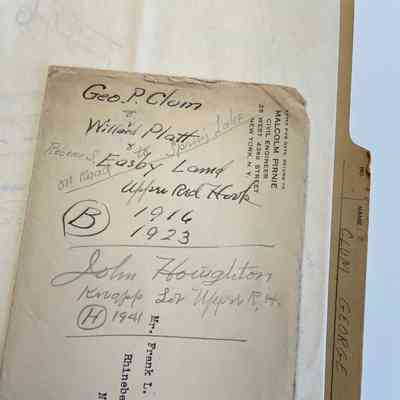 Geo. P. Clum
&
Willard Platt
& by
Easby Land
Upper Red Hook
on Road
Spring Lake
B
1916
1923
John Houghton
Knapp Lot Upper R. H.
H 1941
AFTER FIVE DAYS RETURN TO
MALCOLM PIRNIE
CIVIL ENGINEER
25 WEST 43RD STREET
NEW YORK, N. Y.
Mr. Frank L.
Rhinebe
N
NO.
NAME
CLUM GEORGE